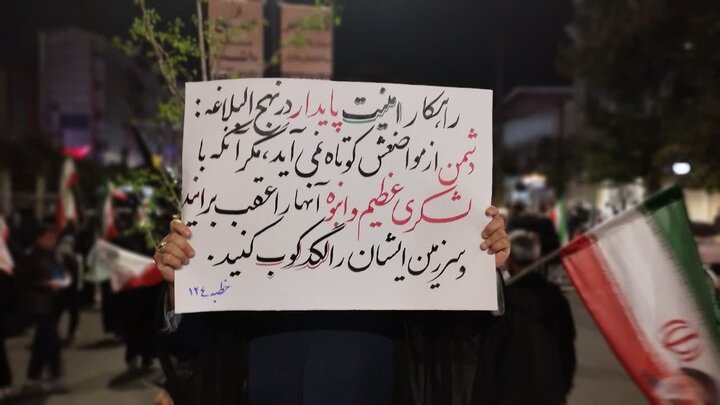 راهکار امنیت پایدار در نهج البلاغه:
دشمن از مواضعش کوتاه نمی آید، مگر آنکه با
لشکری عظیم و انبوه آنها را عقب برانید
و سرزمین ایشان را لگدکوب کنید.
خطبه ١٢٤